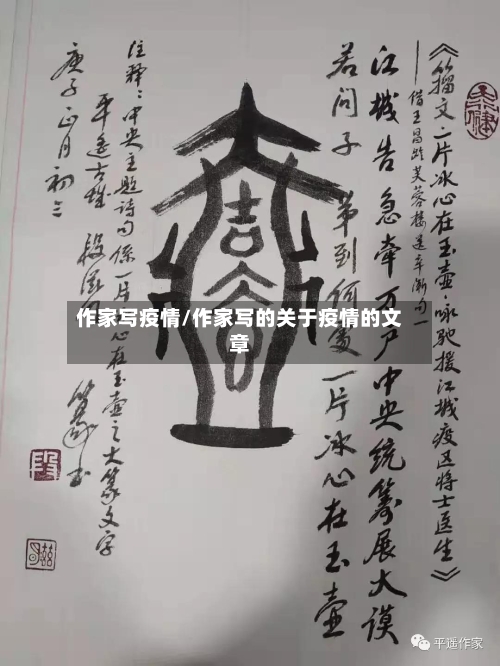 《籀文·一片冰心在玉壶·咏驰援江城疫区将士医生》
——借王昌龄芙蓉楼送辛渐句一
江城告急牵万户中央统筹展大谟
若问子弟到何处一片冰心在玉壶
注释：中央主题诗句係一片冰心在玉壶之大篆文字
平遥古陶
庚子正月初三
作家写疫情/作家写的关于疫情的文
章
平遥作家